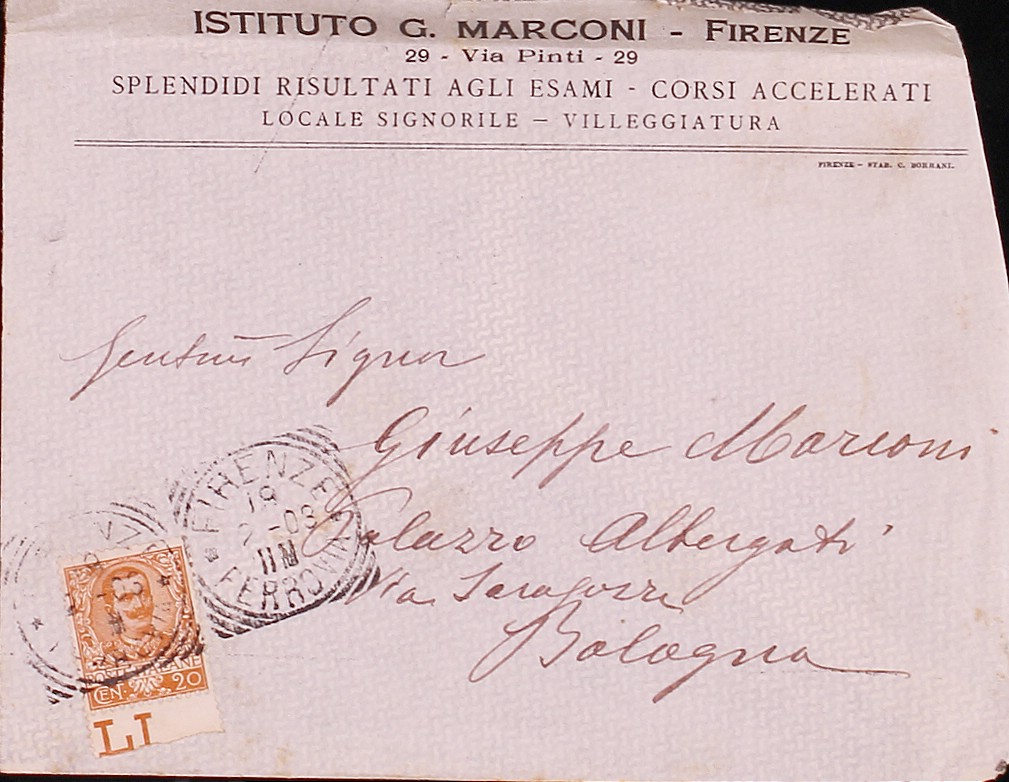 ISTITUTO G. MARCONI - FIRENZE
29 - Via Pinti - 29
SPLENDIDI RISULTATI AGLI ESAMI - CORSI ACCELERATI
LOCALE SIGNORILE - VILLEGGIATURA
FIRENZE - STAB. C. BORRANI.
Signor
Giuseppe Marconi
Palazzo Albergati
Via Saragozza
Bologna
FIRENZE
18
11M
FERROVIA
POSTE ITALIANE
CEN. 20
LI